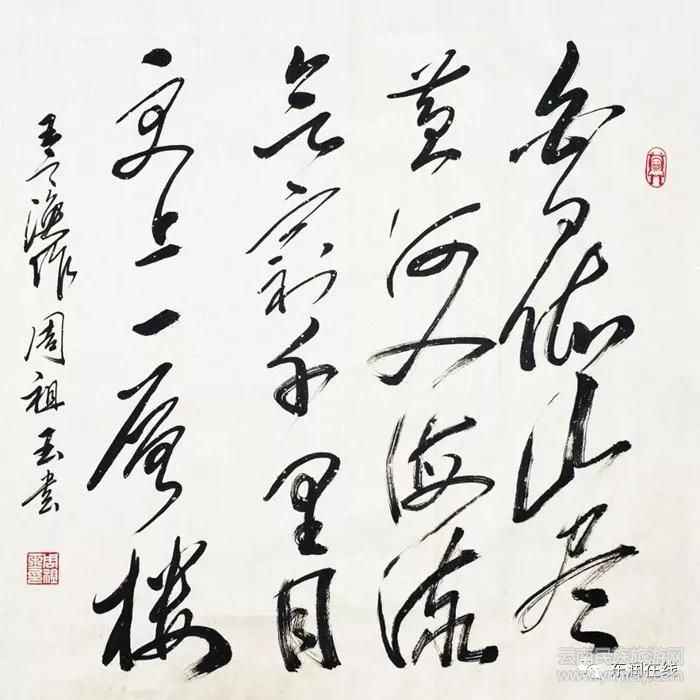 白日依山尽
黄河入海流
欲穷千里目
更上一层楼
王之涣作 周祖玉书
云南民族旅游网
东润在线